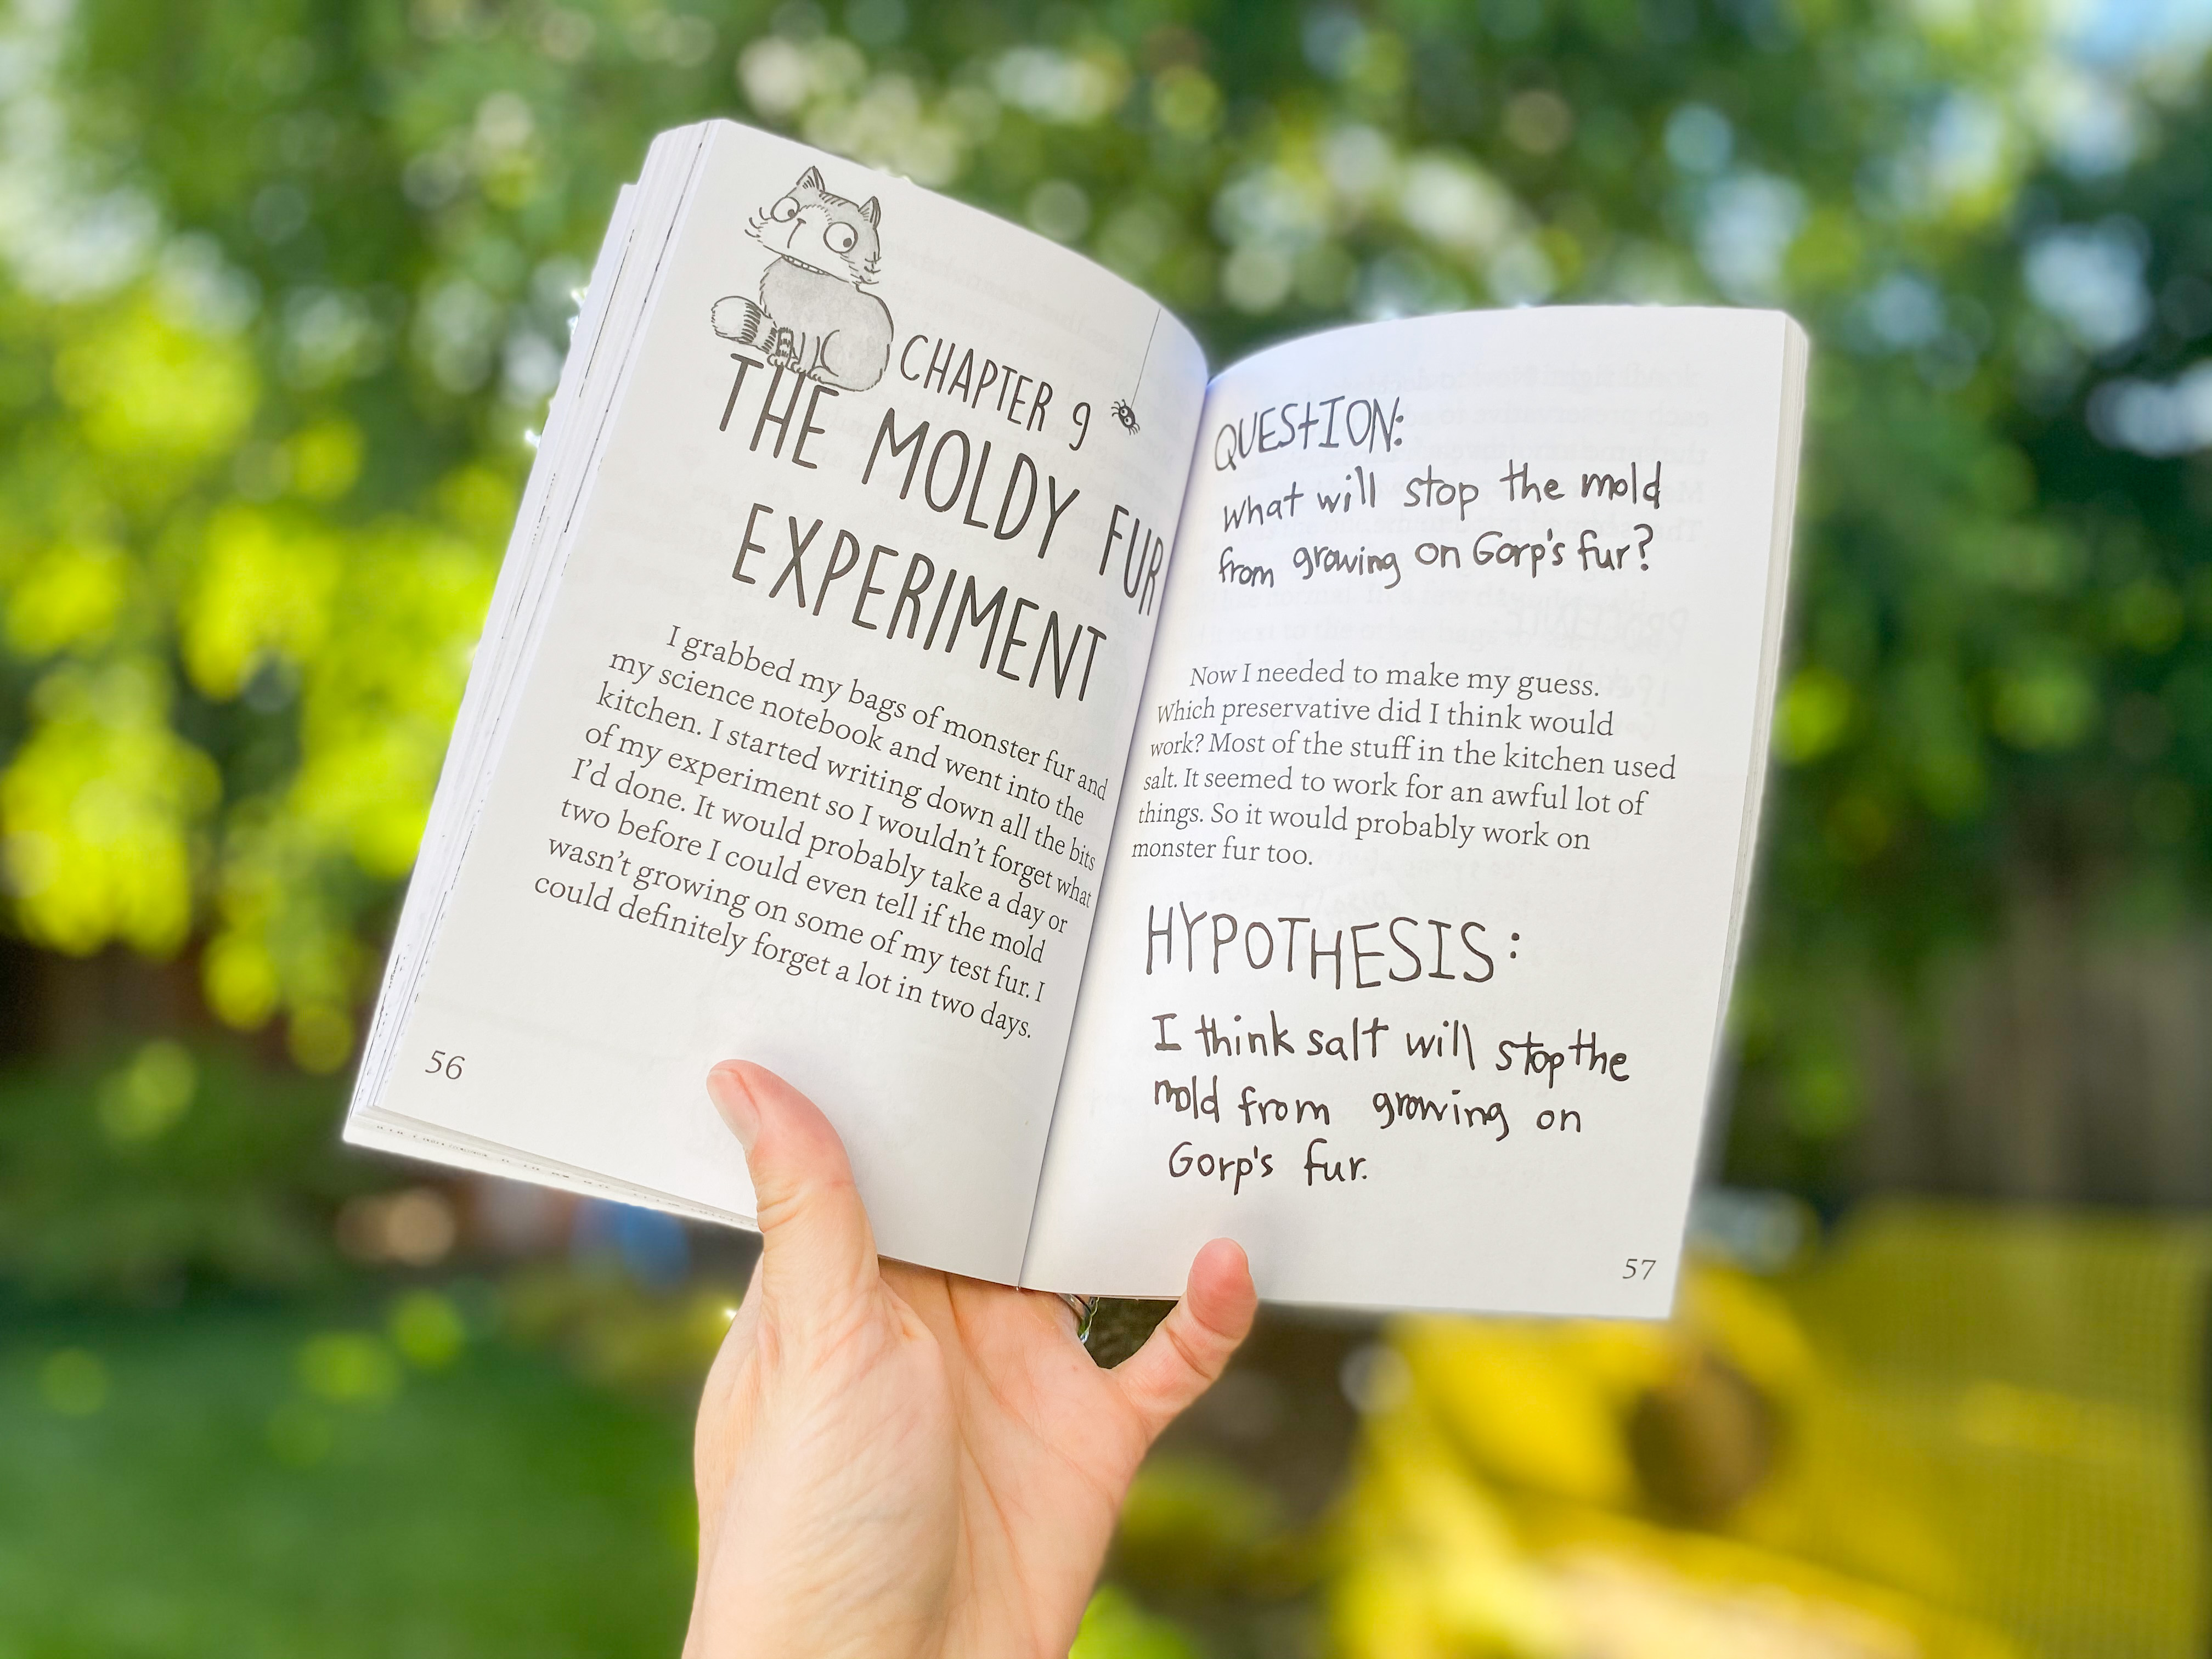 CHAPTER 9
THE MOLDY FUR
EXPERIMENT
I grabbed my bags of monster fur and
my science notebook and went into the
kitchen. I started writing down all the bits
of my experiment so I wouldn't forget what
I'd done. It would probably take a day or
two before I could even tell if the mold
wasn't growing on some of my test fur. I
could definitely forget a lot in two days.
56
QUESTION:
what will stop the mold
from growing on Gorp's fur?
Now I needed to make my guess.
Which preservative did I think would
work? Most of the stuff in the kitchen used
salt. It seemed to work for an awful lot of
things. So it would probably work on
monster fur too.
HYPOTHESIS:
I think salt will stop the
mold from growing on
Gorp's fur.
57